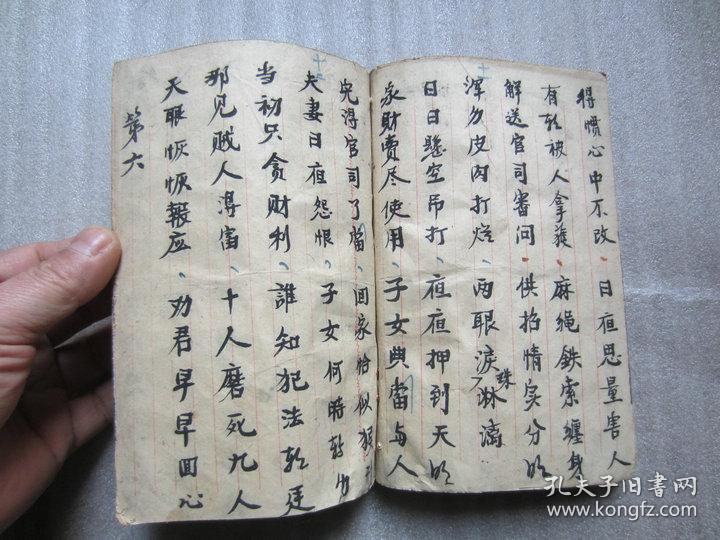 十一
得慣心中不改、日夜思量害人
有乾被人拿獲、麻绳鉄索纏身
解送官司審问、供招情实分明
渾身皮肉打烂、两眼淚珠淋漓
日日懸空吊打、夜夜押到天明
家財賣尽使用、子女典當与人
十二
完得官司了當、回家恰似
夫妻日夜怨恨、子女何時
當初只贪财利、誰知犯法
那见贼人得富、十人磨死九人
天眼恢恢報应、劝君早早回心
第六
孔夫子旧书网
www.kongfz.com